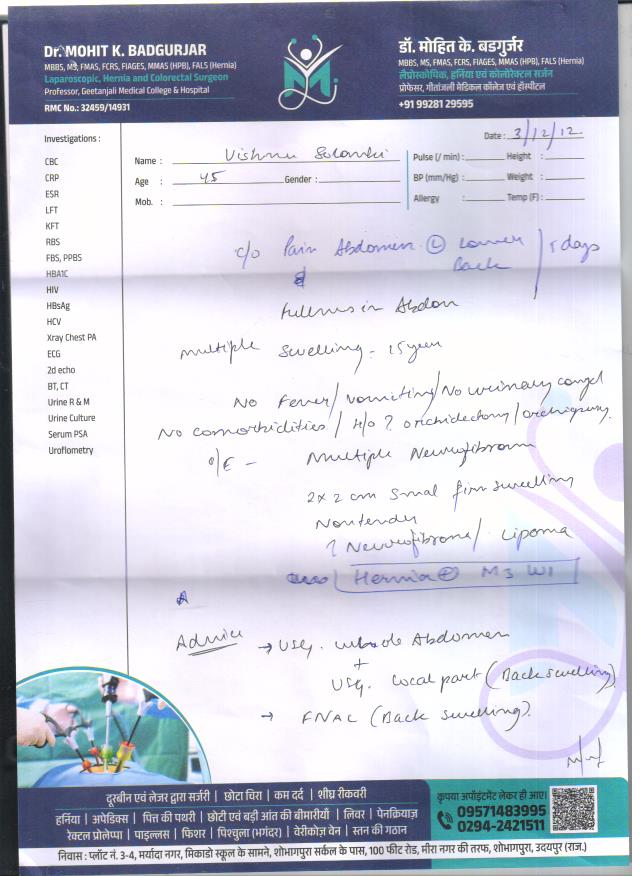 Dr. MOHIT K. BADGURJAR
MBBS, MS, FMAS, FCRS, FIAGES, MMAS (HPB), FALS (Hernia)
Laparoscopic, Hernia and Colorectal Surgeon
Professor, Geetanjali Medical College & Hospital
RMC No.: 32459/14931
डॉ. मोहित के. बडगुर्जर
MBBS, MS, FMAS, FCRS, FIAGES, MMAS (HPB), FALS (Hernia)
लैप्रोस्कोपिक, हर्निया एवं कोलोरेक्टल सर्जन
प्रोफेसर, गीतांजली मेडिकल कॉलेज एवं हॉस्पीटल
+91 99281 29595
Date : 3/12/12
Name : Vishnu Solanki
Age : 45 Gender :
Mob. :
Pulse (/ min) : Height :
BP (mm/Hg) : Weight :
Allergy : Temp (F) :
Investigations :
CBC
CRP
ESR
LFT
KFT
RBS
FBS, PPBS
HBA1C
HIV
HBsAg
HCV
Xray Chest PA
ECG
2d echo
BT, CT
Urine R & M
Urine Culture
Serum PSA
Uroflometry
c/o Pain Abdomen (L) Lower Back / 5 days
fullness in Abdon
Multiple Swelling - 15 year
No Fever / Vomiting / No urinary
No comorbidities / H/O ? orchidectomy /
O/E - Multiple Neurofibroma
2x2 cm Smal firm swelling
Nontender
? Neurofibroma / Lipoma
Hernia M3 W1
Advice → USG. whole Abdomen
+
USG. Local part (Back swelling)
→ FNAC (Back swelling).
दूरबीन एवं लेजर द्वारा सर्जरी | छोटा चिरा | कम दर्द | शीघ्र रीकवरी
हर्निया | अपेडिक्स | पित्त की पथरी | छोटी एवं बड़ी आंत की बीमारीयाँ | लिवर | पेनक्रियाज़
रेक्टल प्रोलेप्पा | पाइल्लस | फिशर | पिश्चुला (भगंदर) | वेरीकोज़ वेन | स्तन की गठान
कृपया अपॉइंटमेंट लेकर ही आए।
09571483995
0294-2421511
निवास : प्लॉट नं. 3-4, मर्यादा नगर, मिकाडो स्कूल के सामने, शोभागपुरा सर्कल के पास, 100 फीट रोड, मीरा नगर की तरफ, शोभागपुरा, उदयपुर (राज.)